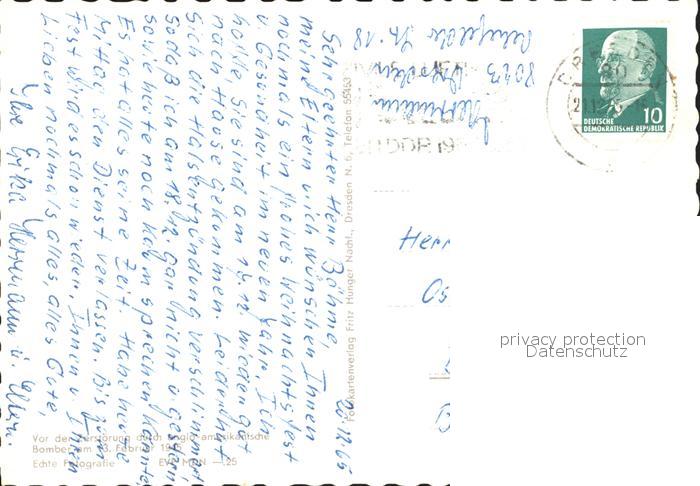 Herrmann
8023 Dresden
Rehefelder Str. 18
20.12.65
Sehr geehrter Herr Böhme,
meine Eltern u. ich wünschen Ihnen
nochmals ein frohes Weihnachtsfest
u. Gesundheit im neuen Jahr. Ich
hoffe, Sie sind am 18.12. wieder gut
nach Hause gekommen. Leider hat
sich die Halsentzündung verschlimmert
sodaß ich am 18.12. gar nicht u. gestern
sowie heute noch kaum sprechen konnte.
Es hat alles seine Zeit. Habe heute
Mittag den Dienst verlassen. Bis zum
Fest wird es schon wieder. Ihnen u. Ihren
Lieben nochmals alles, alles Gute,
Ihre Erika Herrmann u. Eltern
Vor der Zerstörung durch anglo-amerikanische
Bomber am 13. Februar 1945
Echte Fotografie
Postkartenverlag Fritz Hunger Nachf., Dresden N. 6, Telefon 55463
DDR 19
DRESDEN
21.12.
10
DEUTSCHE
DEMOKRATISCHE REPUBLIK
Herr
Os
privacy protection
Datenschutz